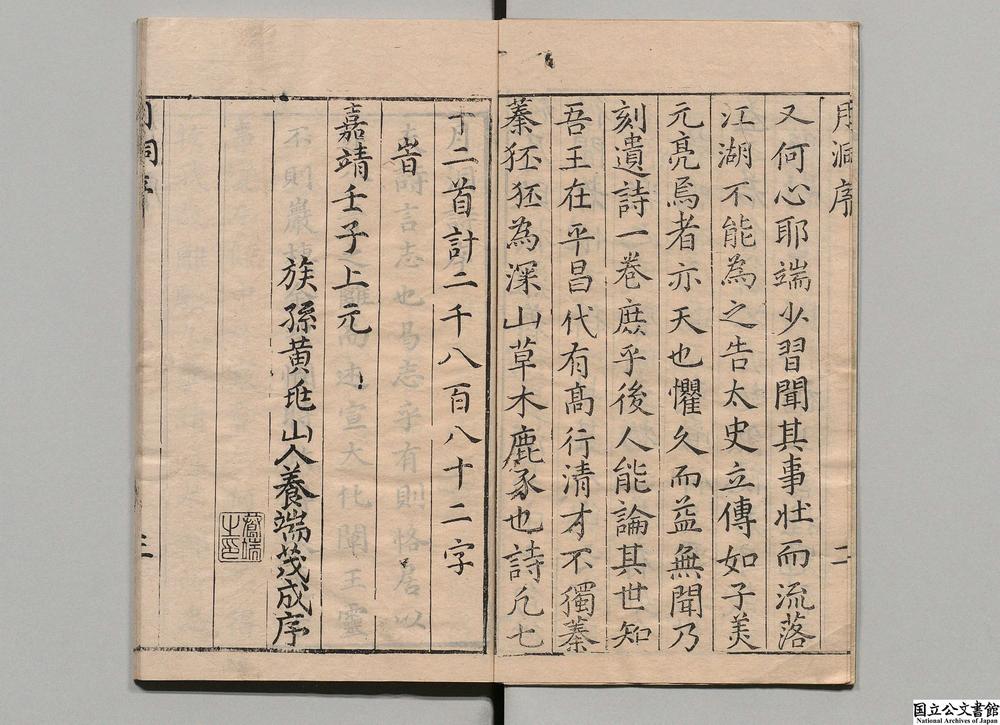 月洞序
又何心耶端少習聞其事壯而流落
江湖不能為之告太史立傳如子美
元亮焉者亦天也懼久而益無聞乃
刻遺詩一卷庶乎後人能論其世知
吾王在平昌代有高行清才不獨蓁
蓁狉狉為深山草木鹿豕也詩凡七
二
十二首計二千八百八十二字
旹
嘉靖壬子上元
族孫黃㐌山人養端茂成序
養端之印
月洞序
三
国立公文書館
National Archives of Japan